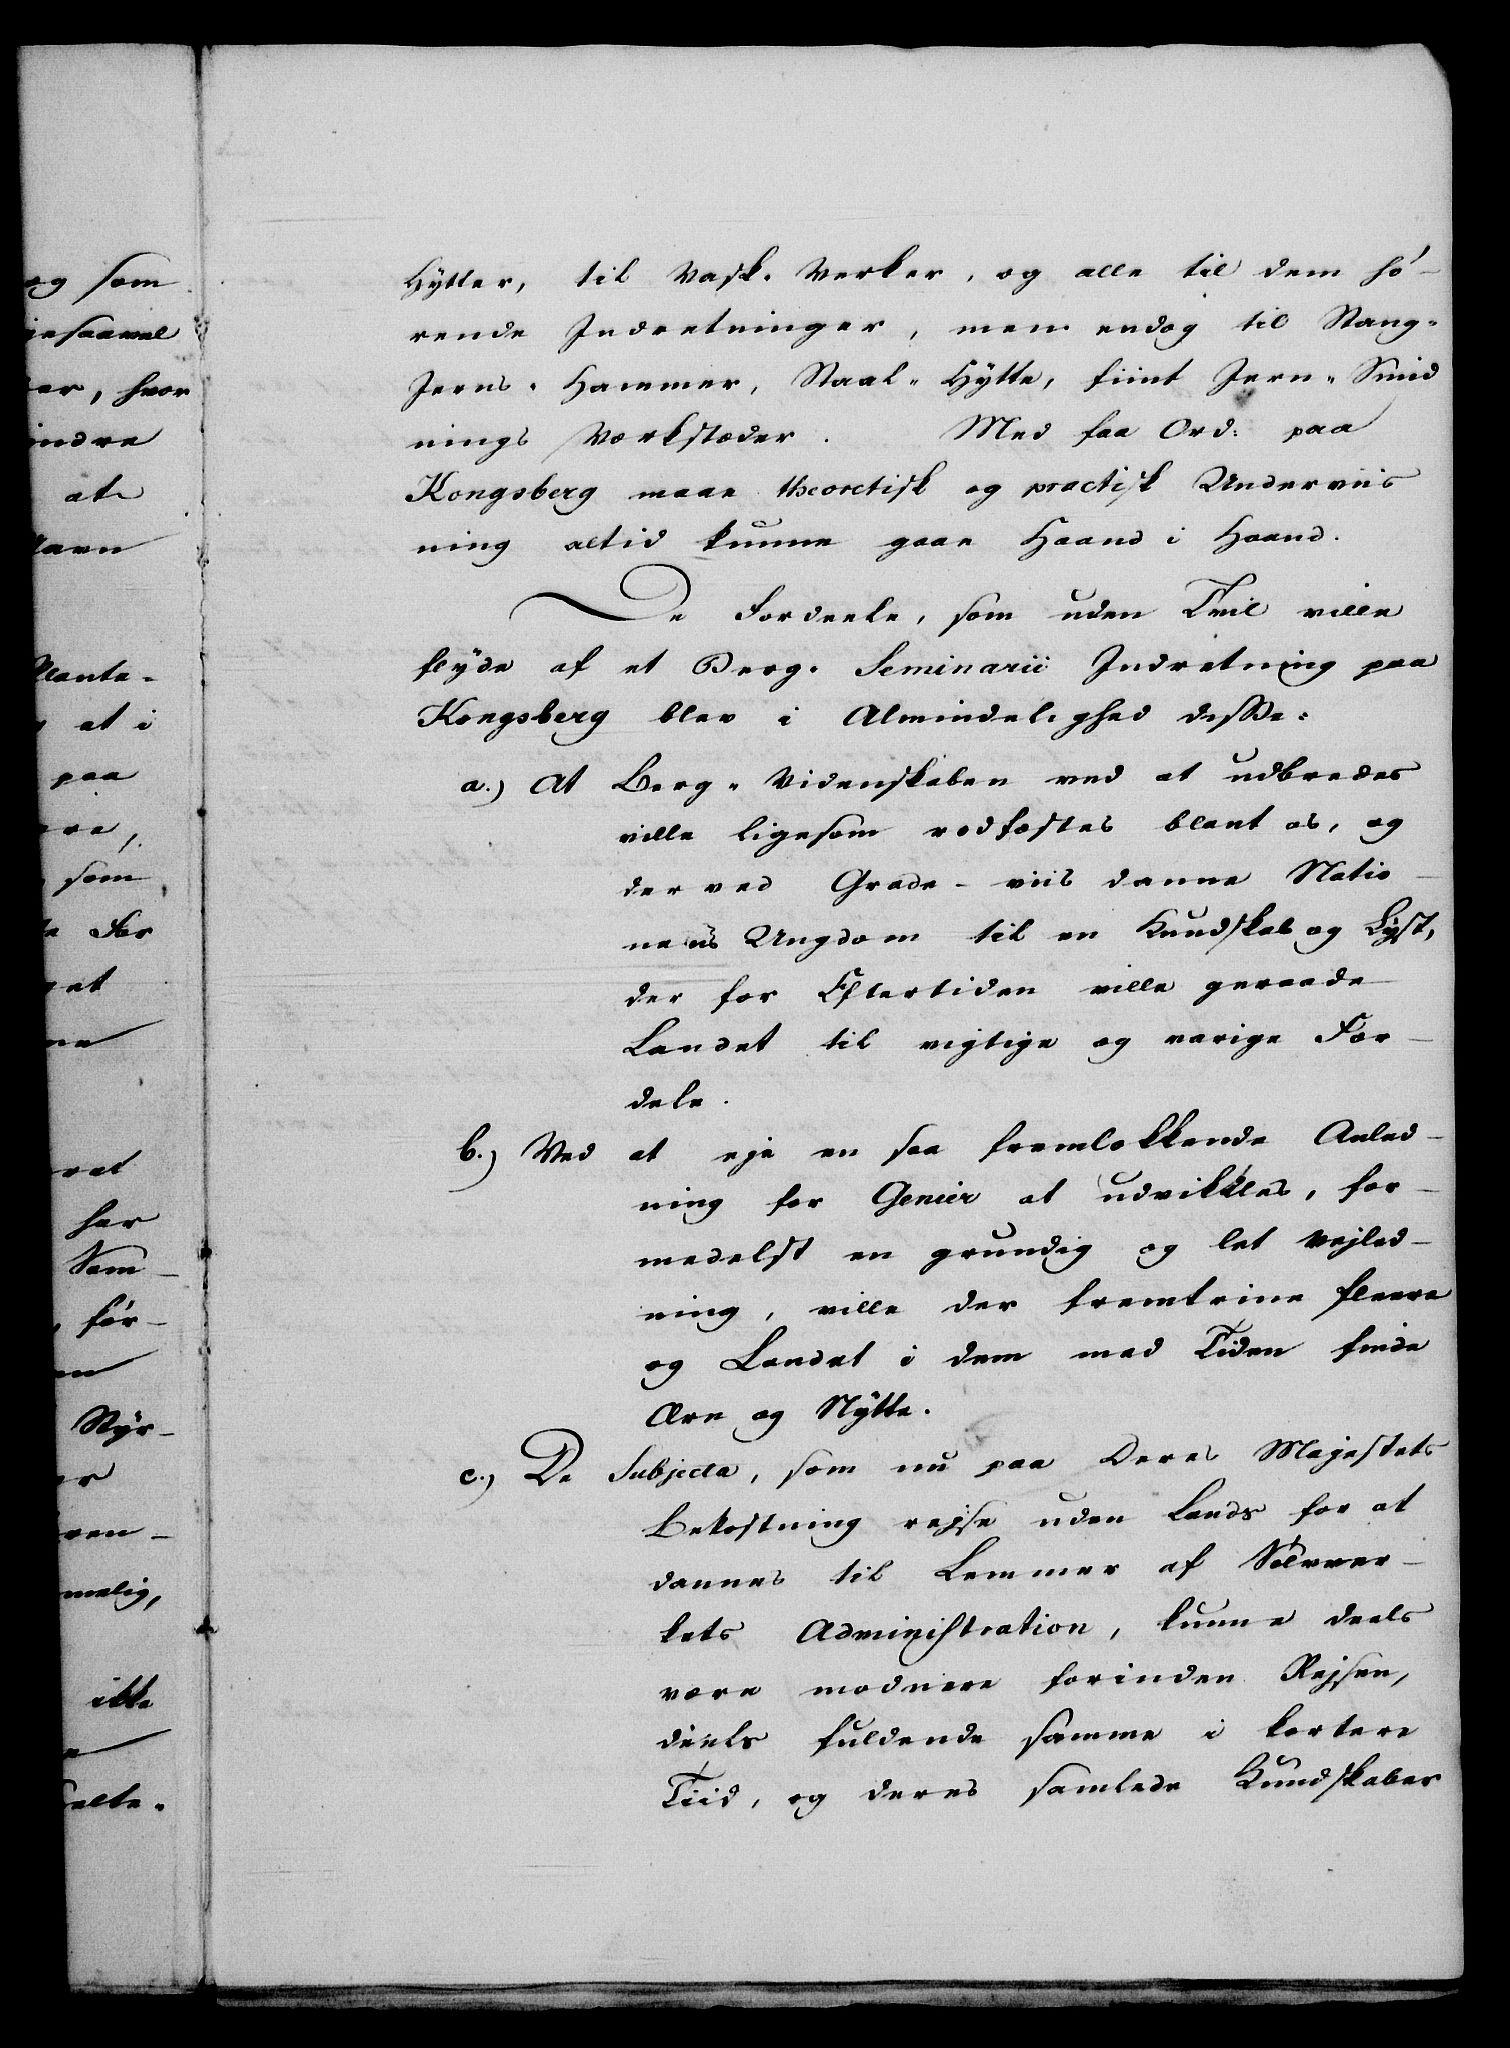 og som
gesaavel
er, hvor
indre
at
Navn
Plante-
at i
paa
ere,
som
te For
get
ne
rat
har
Sam-
, før-
en
Styr-
er
ven-
melig,
ikke
e
celte-
Hytter, til Vask-Verker, og alle til dem hø-
rende Indretninger, men endog til Stang-
Jerns-Hammer, Staal-Hytte, fiint Jern-Smid
nings Værkstæder. Med faa Ord: paa
Kongsberg maae theoretisk og practisk Underviis
ning altid kunne gaae Haand i Haand.
De Fordeele, som uden Tvil ville
flyde af et Berg-Seminarii Indretning paa
Kongsberg blev i Almindelighed disse:
a.) At Berg-Videnskaben ved at udbredes
ville ligesom rodfæstes blant os, og
derved Grade-viis danne Natio-
nens Ungdom til en Kundskab og Lyst,
der for Eftertiden ville geraade
Landet til vigtige og varige For-
dele.
b.) Ved at eje en saa fremlokkende Anled-
ning for Genier at udvikkles, for-
medelst en grundig og let Vejled-
ning, ville der fremtrine fleere
og Landet i dem med Tiden finde
Ære og Nytte.
c.) De Subjecta, som nu paa Deres Majestets
Bekostning rejse uden Lands for at
dannes til Lemmer af Sølvver-
kets Administration, kunne deels
være modnere forinden Rejsen,
deels fuldende samme i kortere
Tiid, og deres samlede Kundskaber